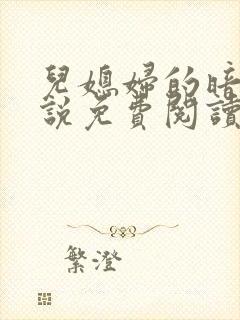 兒媳婦的暗
說免費閱讀
繁澄